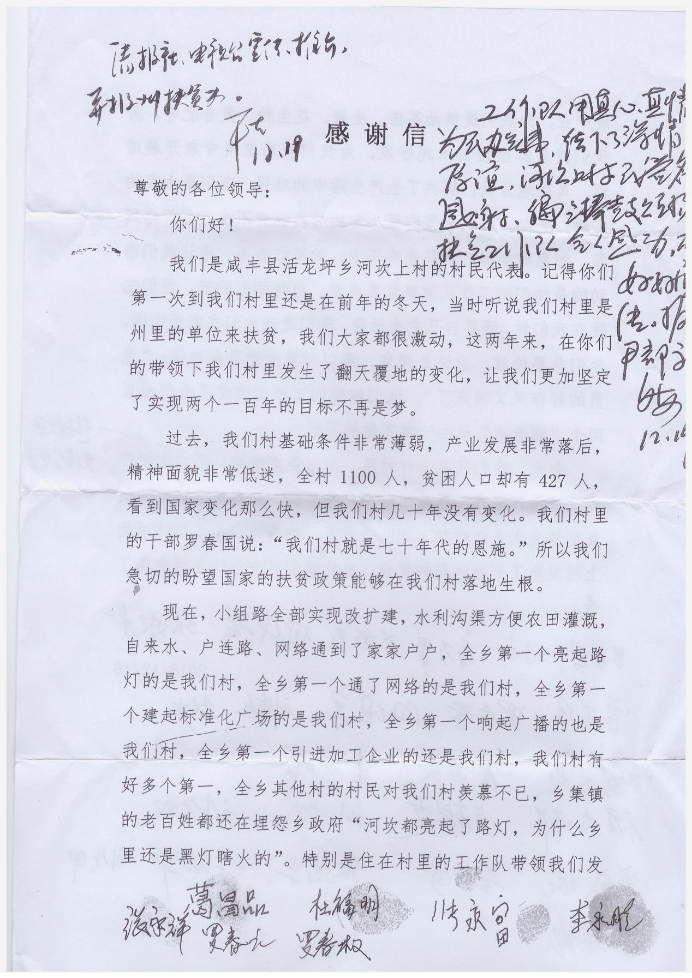 请报社、电视台宣传、推介,
并报州扶贫办。
12.19
工作队用真心、真情
为民办实事,结下了深情
厚谊,河坎上村
扶贫工作队令人感动,
好好
12.19
感谢信
尊敬的各位领导:
你们好!
我们是咸丰县活龙坪乡河坎上村的村民代表。记得你们
第一次到我们村里还是在前年的冬天,当时听说我们村里是
州里的单位来扶贫,我们大家都很激动,这两年来,在你们
的带领下我们村里发生了翻天覆地的变化,让我们更加坚定
了实现两个一百年的目标不再是梦。
过去,我们村基础条件非常薄弱,产业发展非常落后,
精神面貌非常低迷,全村 1100 人,贫困人口却有 427 人,
看到国家变化那么快,但我们村几十年没有变化。我们村里
的干部罗春国说:“我们村就是七十年代的恩施。”所以我们
急切的盼望国家的扶贫政策能够在我们村落地生根。
现在,小组路全部实现改扩建,水利沟渠方便农田灌溉,
自来水、户连路、网络通到了家家户户,全乡第一个亮起路
灯的是我们村,全乡第一个通了网络的是我们村,全乡第一
个建起标准化广场的是我们村,全乡第一个响起广播的也是
我们村,全乡第一个引进加工企业的还是我们村,我们村有
好多个第一,全乡其他村的村民对我们村羡慕不已,乡集镇
的老百姓都还在埋怨乡政府“河坎都亮起了路灯,为什么乡
里还是黑灯瞎火的”。特别是住在村里的工作队带领我们发
葛昌品 杜福明
张永祥 罗春权 李永胜